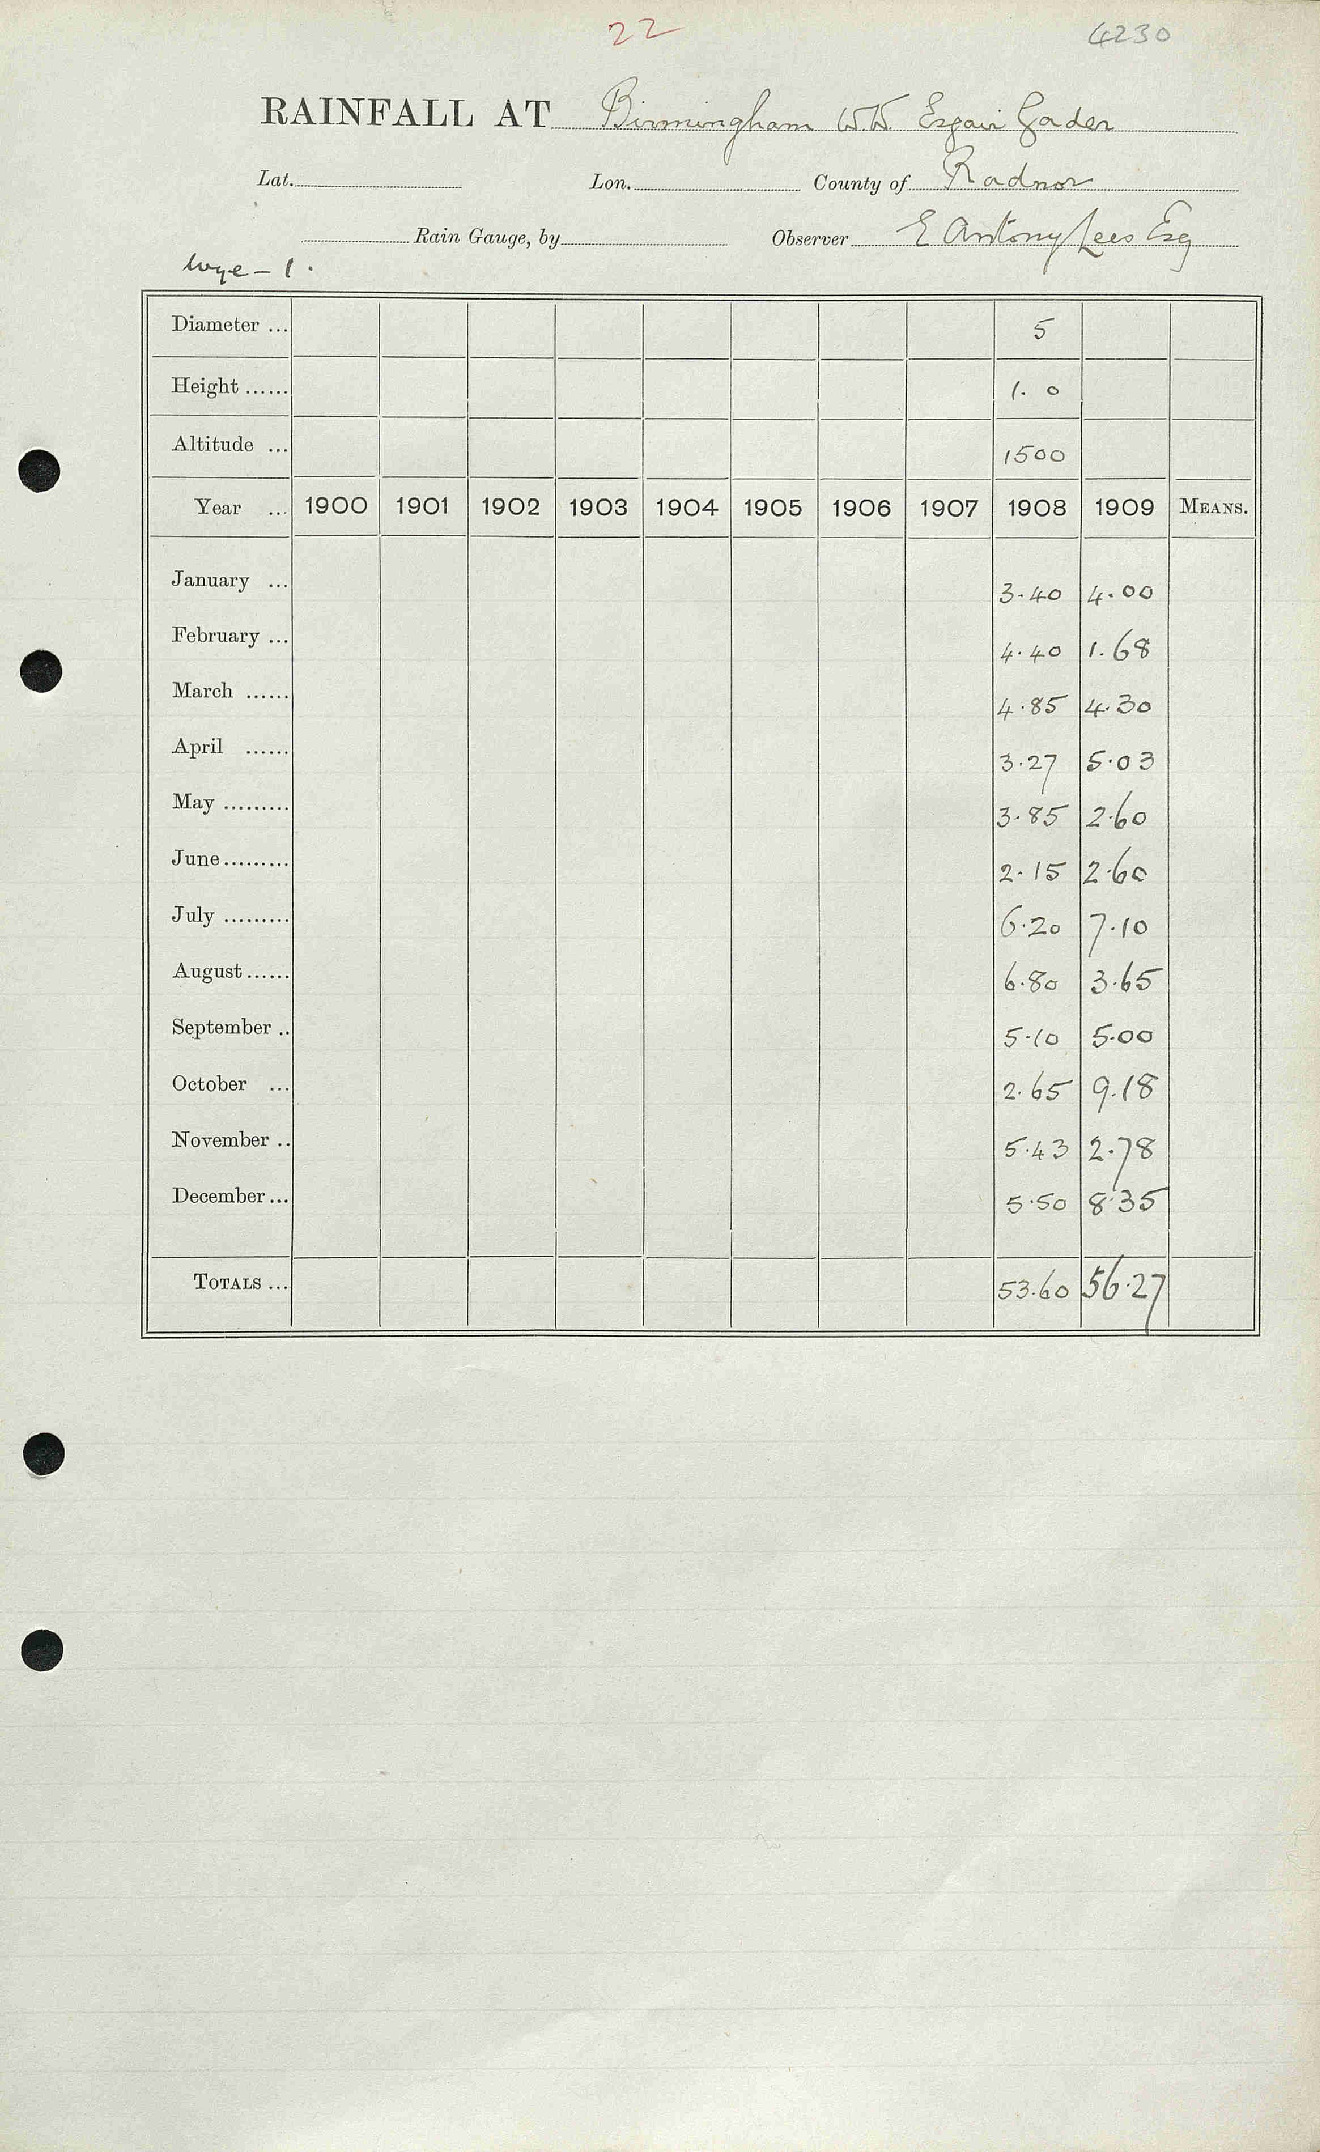 22
4230
RAINFALL AT Birmingham W.W. Esgair Gader
Lat. Lon. County of Radnor
Rain Gauge, by Observer E Antony Lees Esq
Wye - 1.
Diameter ... 5
Height ...... 1. 0
Altitude ... 1500
Year ... 1900 1901 1902 1903 1904 1905 1906 1907 1908 1909 MEANS.
January ... 3.40 4.00
February ... 4.40 1.68
March ...... 4.85 4.30
April ...... 3.27 5.03
May ......... 3.85 2.60
June ......... 2.15 2.60
July ......... 6.20 7.10
August ...... 6.80 3.65
September .. 5.10 5.00
October ... 2.65 9.18
November .. 5.43 2.78
December ... 5.50 8.35
TOTALS ... 53.60 56.27